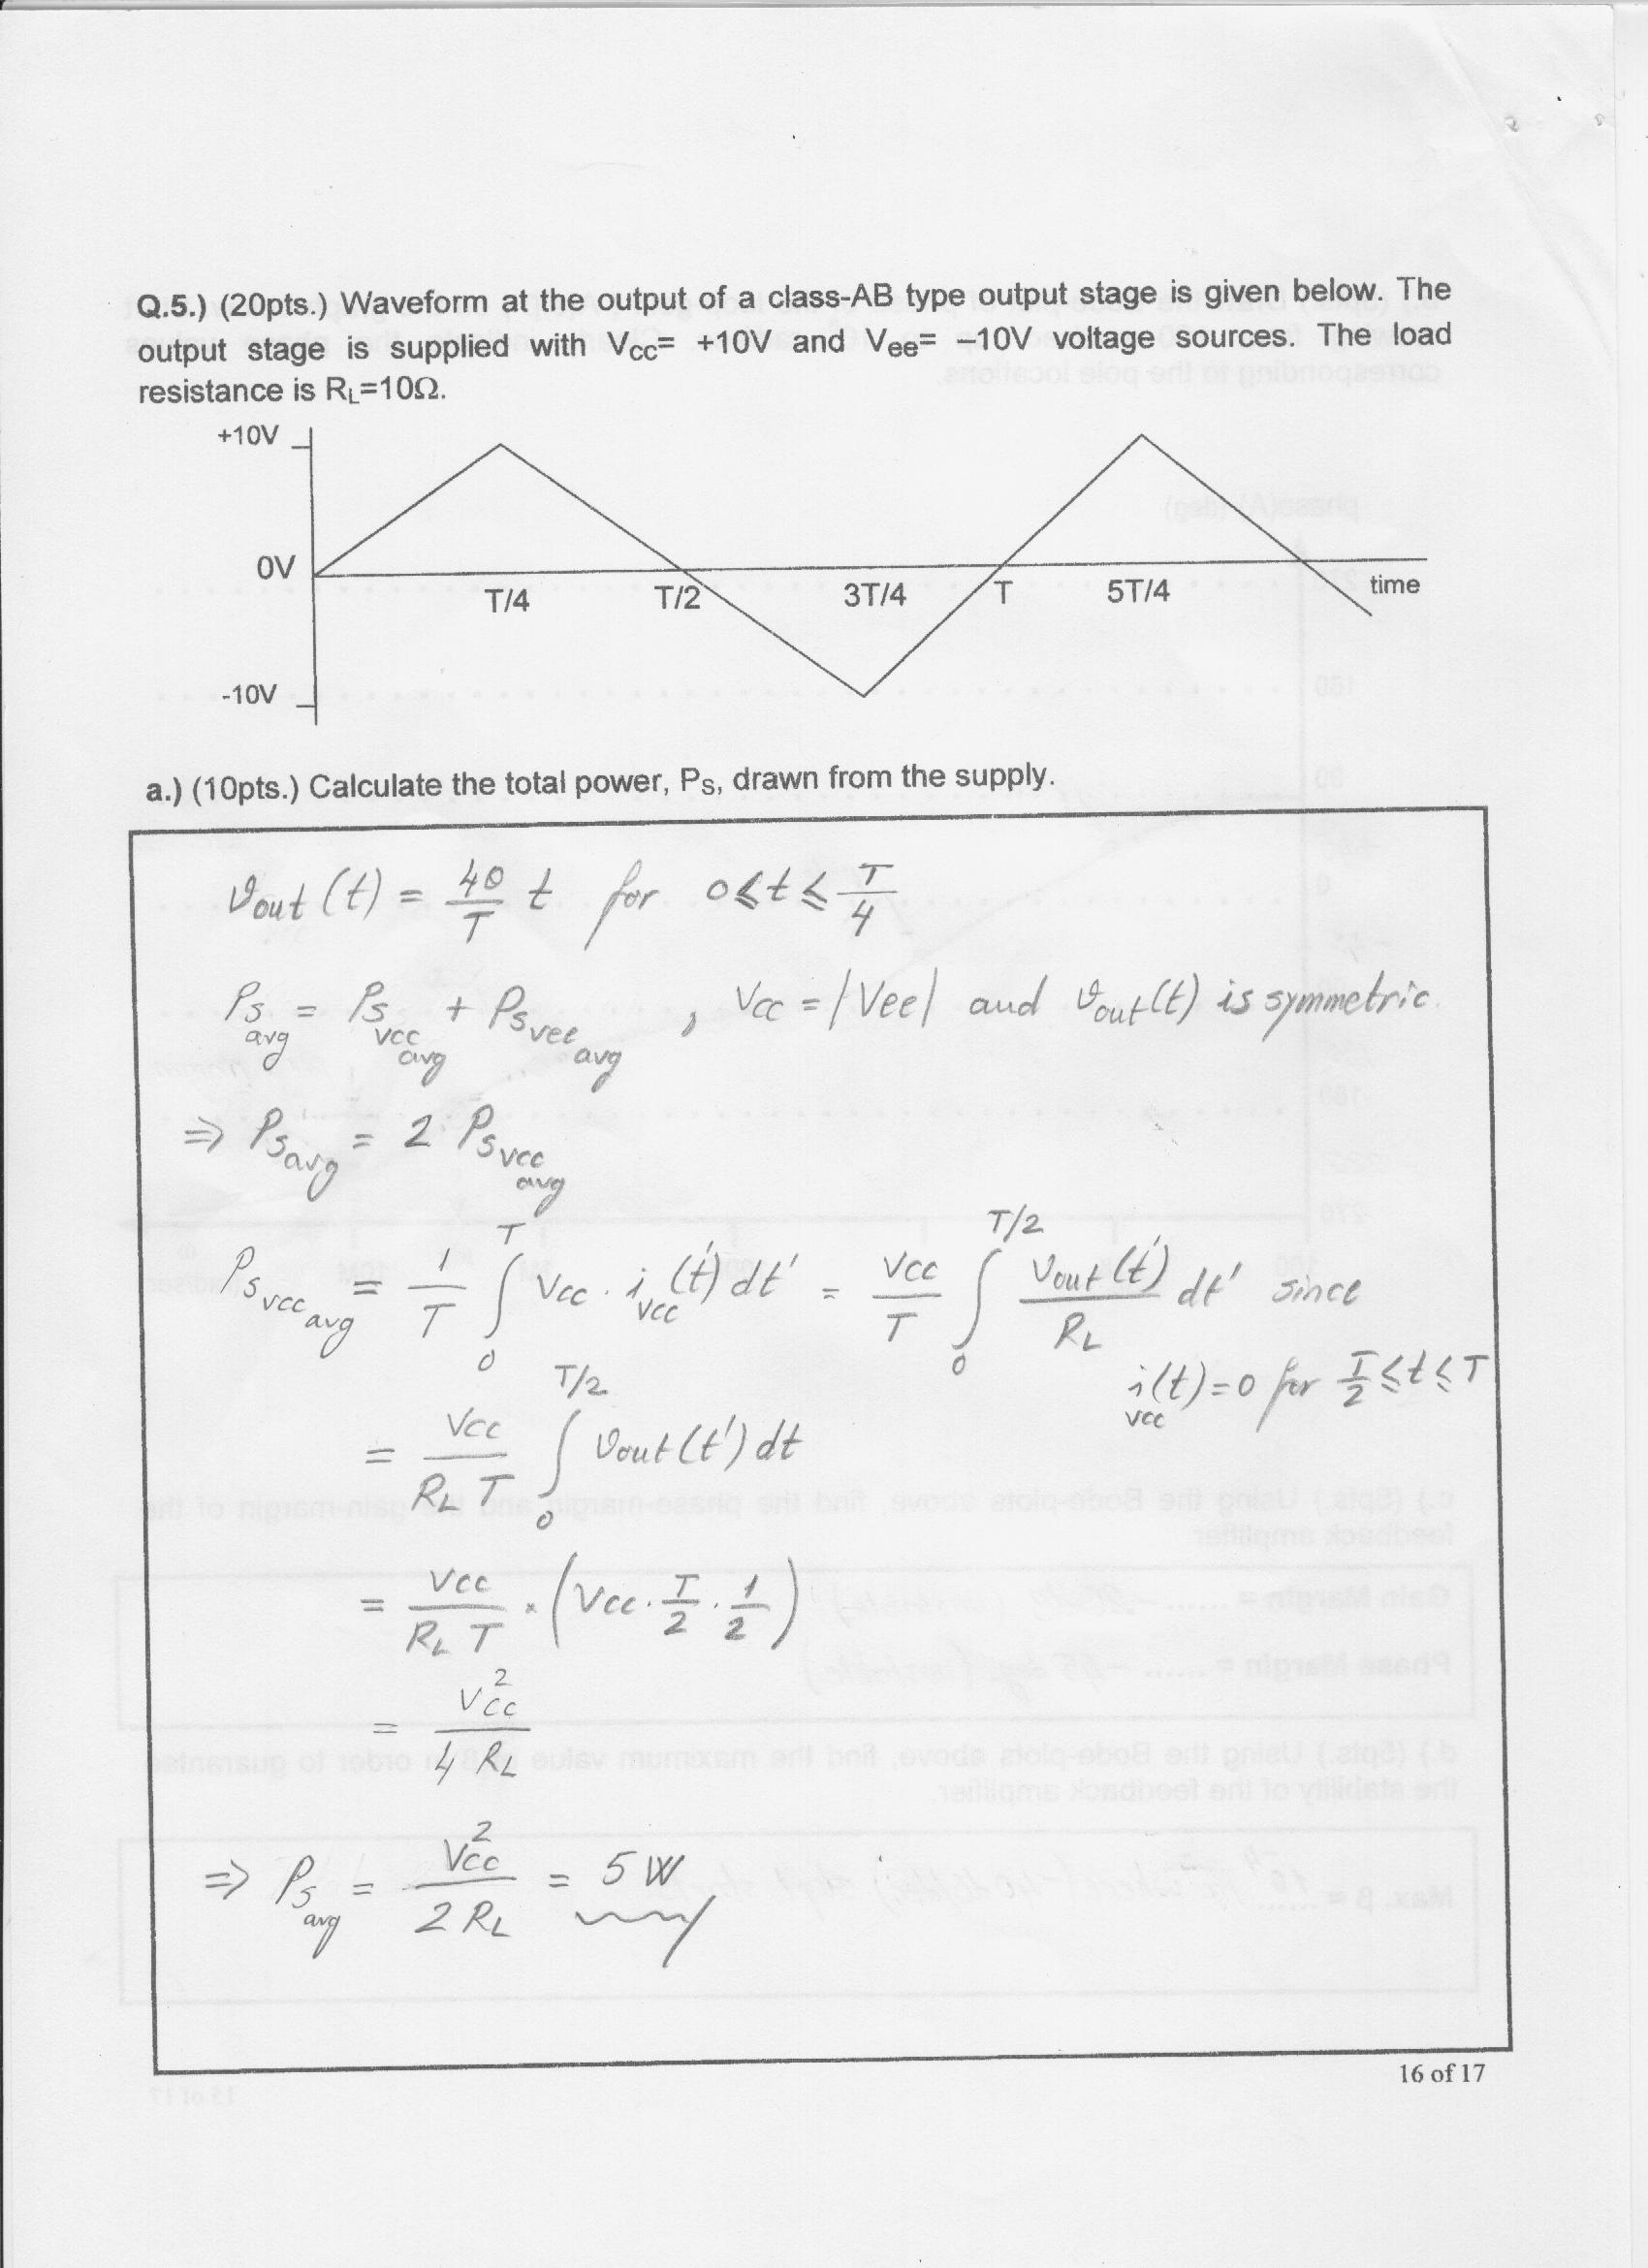 Q.5.) (20pts.) Waveform at the output of a class-AB type output stage is given below. The
output stage is supplied with Vcc= +10V and Vee= –10V voltage sources. The load
resistance is RL=10Ω.
+10V
0V
T/4
T/2
3T/4
T
5T/4
time
-10V
a.) (10pts.) Calculate the total power, PS, drawn from the supply.
Vout (t) = 40/T t for 0 ≤ t ≤ T/4
Ps avg = Ps vcc avg + Ps vee avg , Vcc = |Vee| and Vout(t) is symmetric.
⇒ Ps avg = 2 Ps vcc avg
Ps vcc avg = 1/T ∫0^T Vcc . i vcc (t') dt' = Vcc/T ∫0^T/2 Vout(t')/RL dt' since
i vcc (t) = 0 for T/2 ≤ t ≤ T
= Vcc/(RL T) ∫0^T/2 Vout(t') dt
= Vcc/(RL T) × (Vcc . T/2 . 1/2)
= Vcc²/(4 RL)
⇒ Ps avg = Vcc²/(2 RL) = 5 W
16 of 17